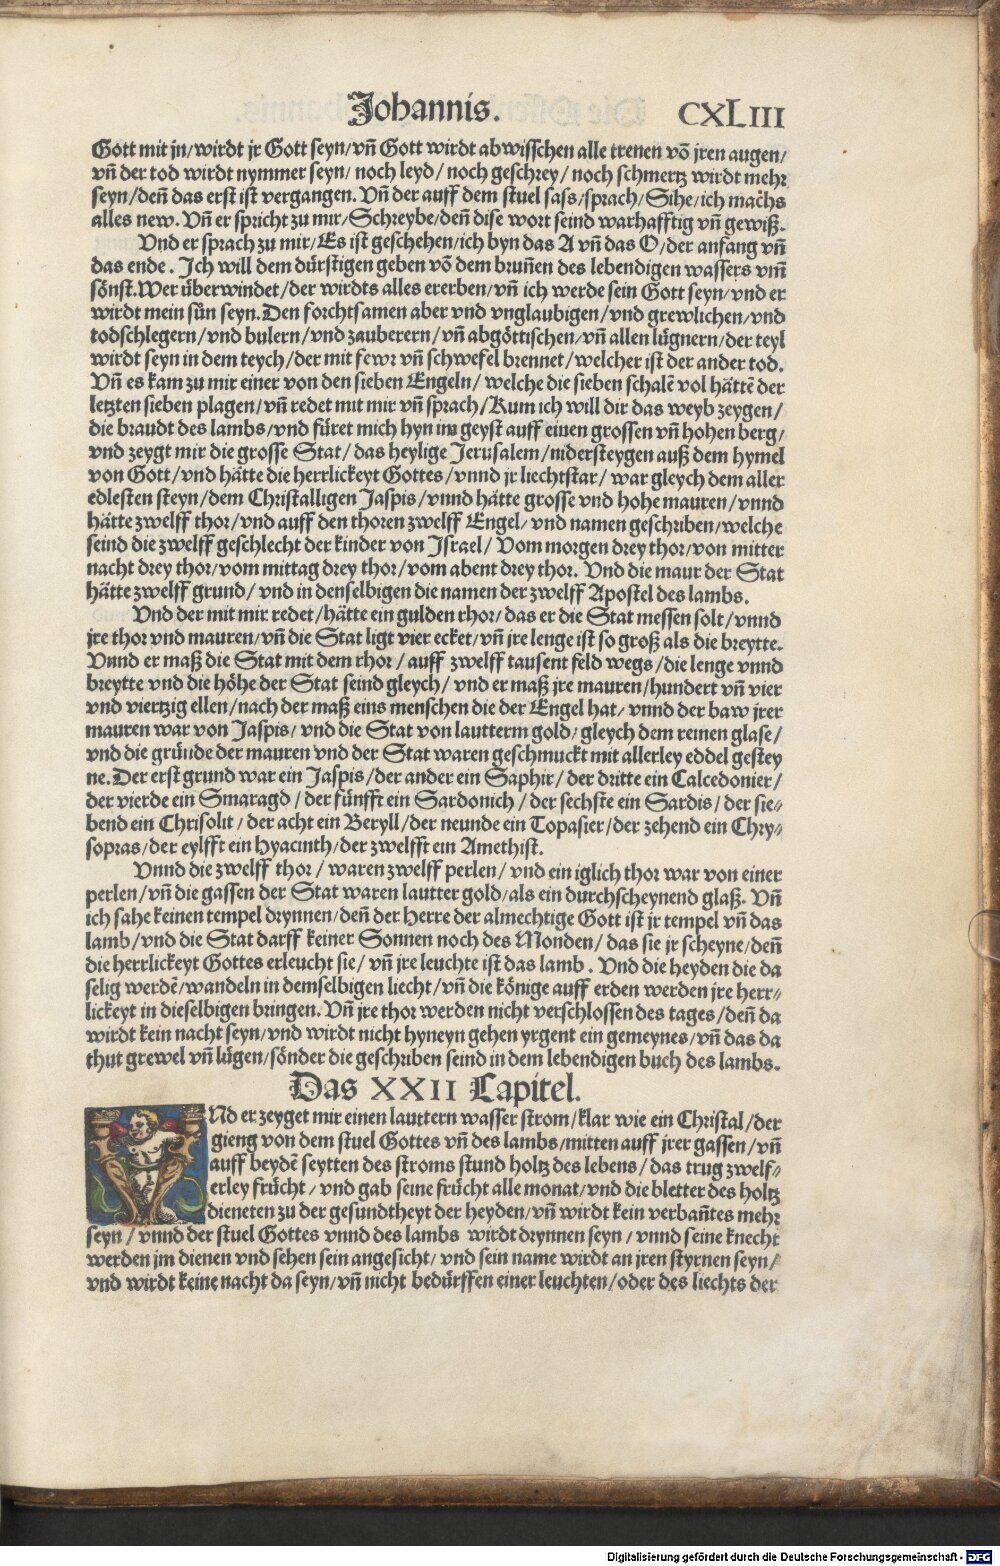 Johannis. CXLIII
Gott mit jn/wirdt jr Gott seyn/vn̄ Gott wirdt abwisschen alle trenen võ jren augen/
vn̄ der tod wirdt nymmer seyn/ noch leyd/ noch geschrey/ noch schmertz wirdt mehr
seyn/den̄ das erst ist vergangen. Vn̄ der auff dem stuel sass/sprach/Sihe/ich machs
alles new. Vn̄ er spricht zu mir/Schreybe/den̄ dise wort seind warhafftig vn̄ gewiß.
Vnd er sprach zu mir/Es ist geschehen/ich byn das A vn̄ das O/der anfang vn̄
das ende. Ich will dem dürstigen geben võ dem brun̄en des lebendigen wassers vmm̄
sönst.Wer überwindet/der wirdts alles ererben/vn̄ ich werde sein Gott seyn/vnd er
wirdt mein sün seyn.Den forchtsamen aber vnd vnglaubigen/vnd grewlichen/vnd
todschlegern/vnd bulern/vnd zauberern/vn̄ abgöttischen/vn̄ allen lügnern/der teyl
wirdt seyn in dem teych/der mit fewr vn̄ schwefel brennet/welcher ist der ander tod.
Vn̄ es kam zu mir einer von den sieben Engeln/ welche die sieben schalē vol hättē der
letzten sieben plagen/vn̄ redet mit mir vn̄ sprach/Kum ich will dir das weyb zeygen/
die braudt des lambs/vnd füret mich hyn im geyst auff einen grossen vn̄ hohen berg/
vnd zeygt mir die grosse Stat/ das heylige Jerusalem/nidersteygen auß dem hymel
von Gott/vnd hätte die herrlickeyt Gottes/vnnd jr liechtstar/ war gleych dem aller
edlesten steyn/dem Christalligen Jaspis/vnnd hätte grosse vnd hohe mauren/vnnd
hätte zwelff thor/vnd auff den thoren zwelff Engel/ vnd namen geschriben/welche
seind die zwelff geschlecht der kinder von Israel/ Vom morgen drey thor/von mitter
nacht drey thor/vom mittag drey thor/vom abent drey thor. Vnd die maur der Stat
hätte zwelff grund/ vnd in denselbigen die namen der zwelff Apostel des lambs.
Vnd der mit mir redet/hätte ein gulden rhor/das er die Stat messen solt/vnnd
jre thor vnd mauren/vn̄ die Stat ligt vier ecket/vn̄ jre lenge ist so groß als die breytte.
Vnnd er maß die Stat mit dem rhor/ auff zwelff tausent feld wegs/die lenge vnnd
breytte vnd die höhe der Stat seind gleych/ vnd er maß jre mauren/hundert vn̄ vier
vnd viertzig ellen/nach der maß eins menschen die der Engel hat/ vnnd der baw jrer
mauren war von Jaspis/ vnd die Stat von lautterm gold/gleych dem reinen glase/
vnd die gründe der mauren vnd der Stat waren geschmuckt mit allerley eddel gestey
ne.Der erst grund war ein Jaspis/der ander ein Saphir/ der dritte ein Calcedonier/
der vierde ein Smaragd/ der fünfft ein Sardonich/ der sechste ein Sardis/ der sie⸗
bend ein Chrisolit/ der acht ein Beryll/der neunde ein Topasier/der zehend ein Chry⸗
sopras/der eylfft ein Hyacinth/der zwelfft ein Amethist.
Vnnd die zwelff thor/ waren zwelff perlen/ vnd ein iglich thor war von einer
perlen/vn̄ die gassen der Stat waren lautter gold/als ein durchscheynend glaß. Vn̄
ich sahe keinen tempel drynnen/den̄ der Herre der almechtige Gott ist jr tempel vn̄ das
lamb/vnd die Stat darff keiner Sonnen noch des Monden/ das sie jr scheyne/den̄
die herrlickeyt Gottes erleucht sie/ vn̄ jre leuchte ist das lamb. Vnd die heyden die da
selig werdē/wandeln in demselbigen liecht/vn̄ die könige auff erden werden jre herr⸗
lickeyt in dieselbigen bringen. Vn̄ jre thor werden nicht verschlossen des tages/den̄ da
wirdt kein nacht seyn/vnd wirdt nicht hyneyn gehen yrgent ein gemeynes/vn̄ das da
thut grewel vn̄ lügen/sönder die geschriben seind in dem lebendigen buch des lambs.
Das XXII Capitel.
VNd er zeyget mir einen lauttern wasser strom/klar wie ein Christal/der
gieng von dem stuel Gottes vn̄ des lambs/mitten auff jrer gassen/vn̄
auff beydē seytten des stroms stund holtz des lebens/das trug zwelf⸗
erley frücht/ vnd gab seine frücht alle monat/vnd die bletter des holtz
dieneten zu der gesundtheyt der heyden/vn̄ wirdt kein verban̄tes mehr
seyn/ vnnd der stuel Gottes vnnd des lambs wirdt drynnen seyn/vnnd seine knecht
werden jm dienen vnd sehen sein angesicht/ vnd sein name wirdt an jren styrnen seyn/
vnd wirdt keine nacht da seyn/vn̄ nicht bedürffen einer leuchten/oder des liechts der
Digitalisierung gefördert durch die Deutsche Forschungsgemeinschaft - DFG